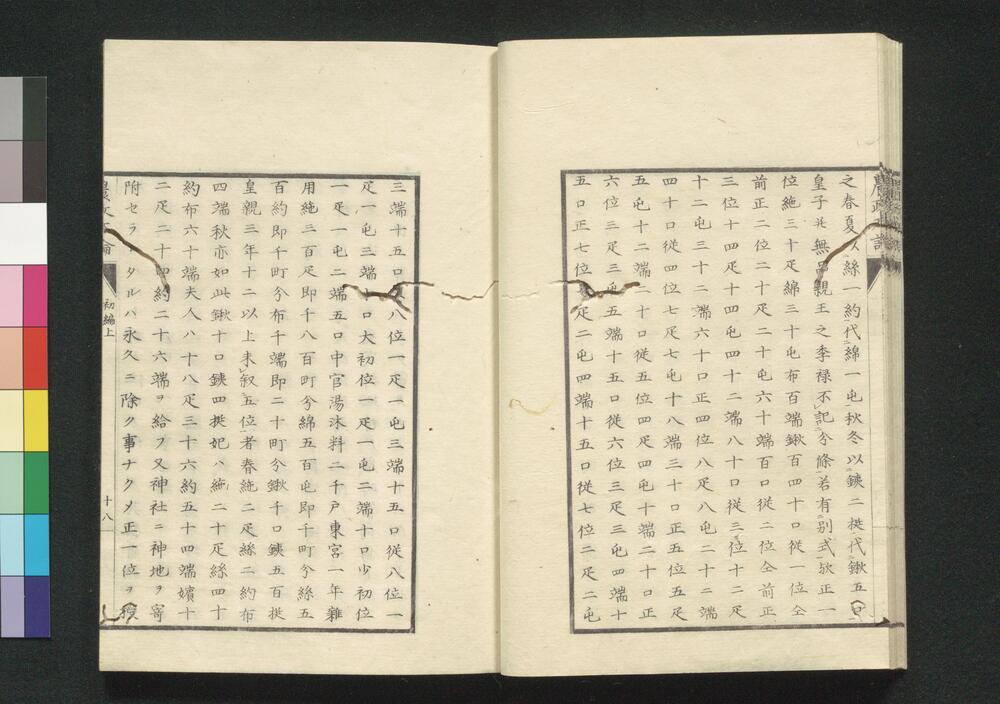 之春夏以絲一約代綿一屯秋冬以鉄二挺代鍬五口
皇子并無品親王之季禄不記分條若有別式欤正一
位絁三十疋綿三十屯布百端鍬百四十口従一位仝
前正二位二十疋二十屯六十端百口従二位仝前正
三位十四疋十四屯四十二端八十口従三位十二疋
十二屯三十二端六十口正四位八疋八屯二十二端
四十口従四位七疋七屯十八端三十口正五位五疋
五屯十二端二十口従五位四疋四屯十端二十口正
六位三疋三屯五端十五口従六位三疋三屯四端十
五口正七位二疋二屯四端十五口従七位二疋二屯
三端十五口八位一疋一屯三端十五口従八位一
疋一屯三端十口大初位一疋一屯二端十口少初位
一疋一屯二端五口中官湯沐料二千戸東宮一年雜
用絁三百疋即千八百町分綿五百屯即千町分絲五
百約即千町分布千端即二十町分鍬千口鉄五百挺
皇親三年十二以上未叙五位者春絁二疋絲二約布
四端秋亦如此鍬十口鉄四挺妃ハ絁二十疋絲四十
約布六十端夫人ハ十八疋三十六約五十四端嬪十
二疋二十四約二十六端ヲ給フ又神社ニ神地ヲ寄
附セラタルハ永久ニ除ク事ナク〆正一位ヲ授
初編上
十八